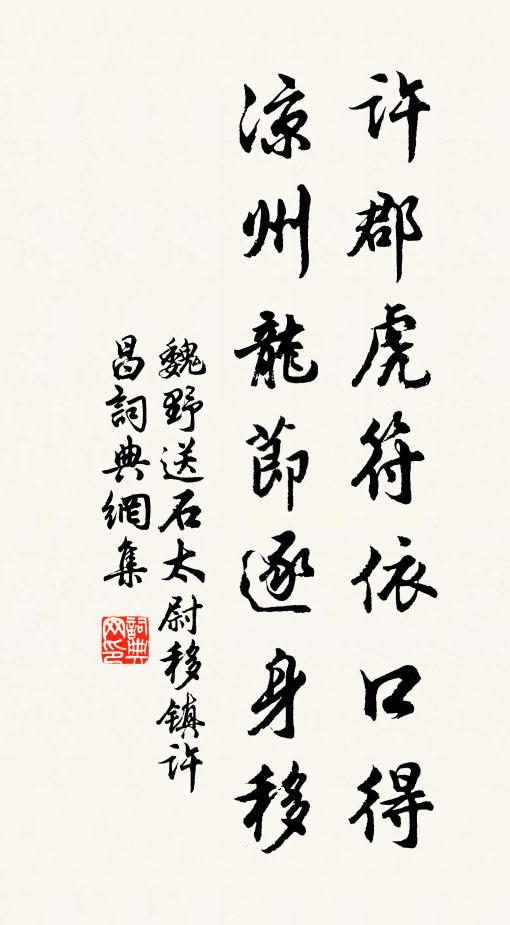 許郡虎符依口得
凉州龍節逐身移
魏野送石太尉移鎮許
昌詞典網集
詞典
网印